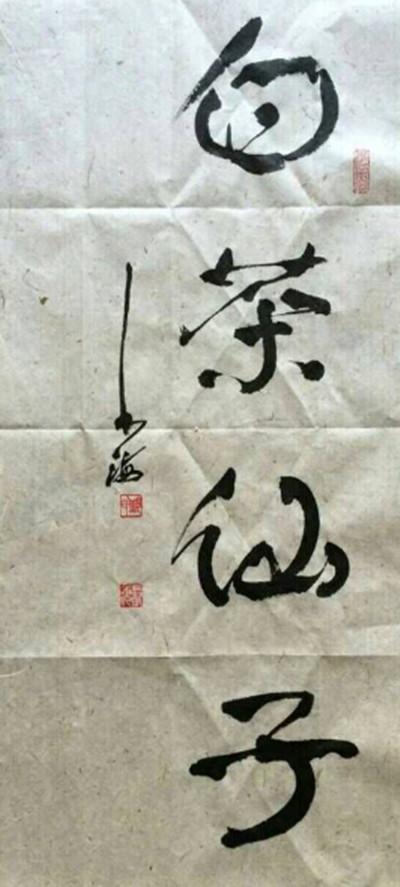 白茶仙子